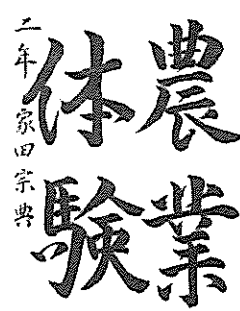 農業
体験
二年 家田宗典